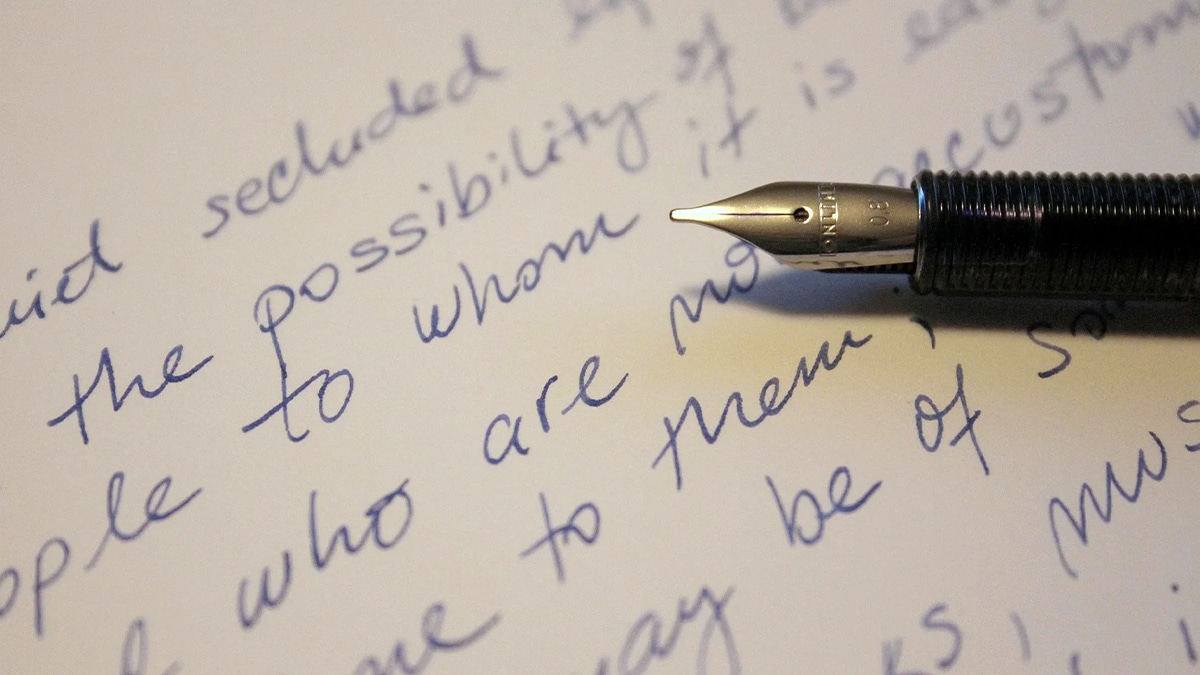 uiet secluded
the possibility of
ople to whom it is eas
who are no accustom
ne to them ;
ay be of so
ks, mus